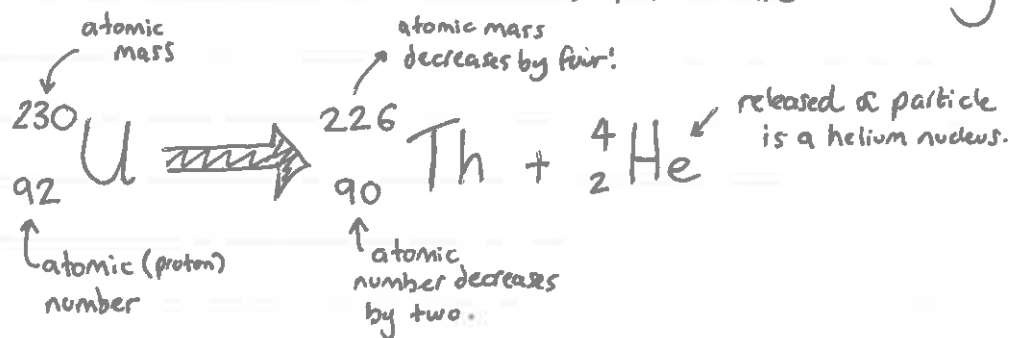 atomic
mass
atomic mass
decreases by four!
230
92
U
226
90
Th + 
4
2
He
released α particle
is a helium nucleus.
atomic (proton)
number
atomic
number decreases
by two.